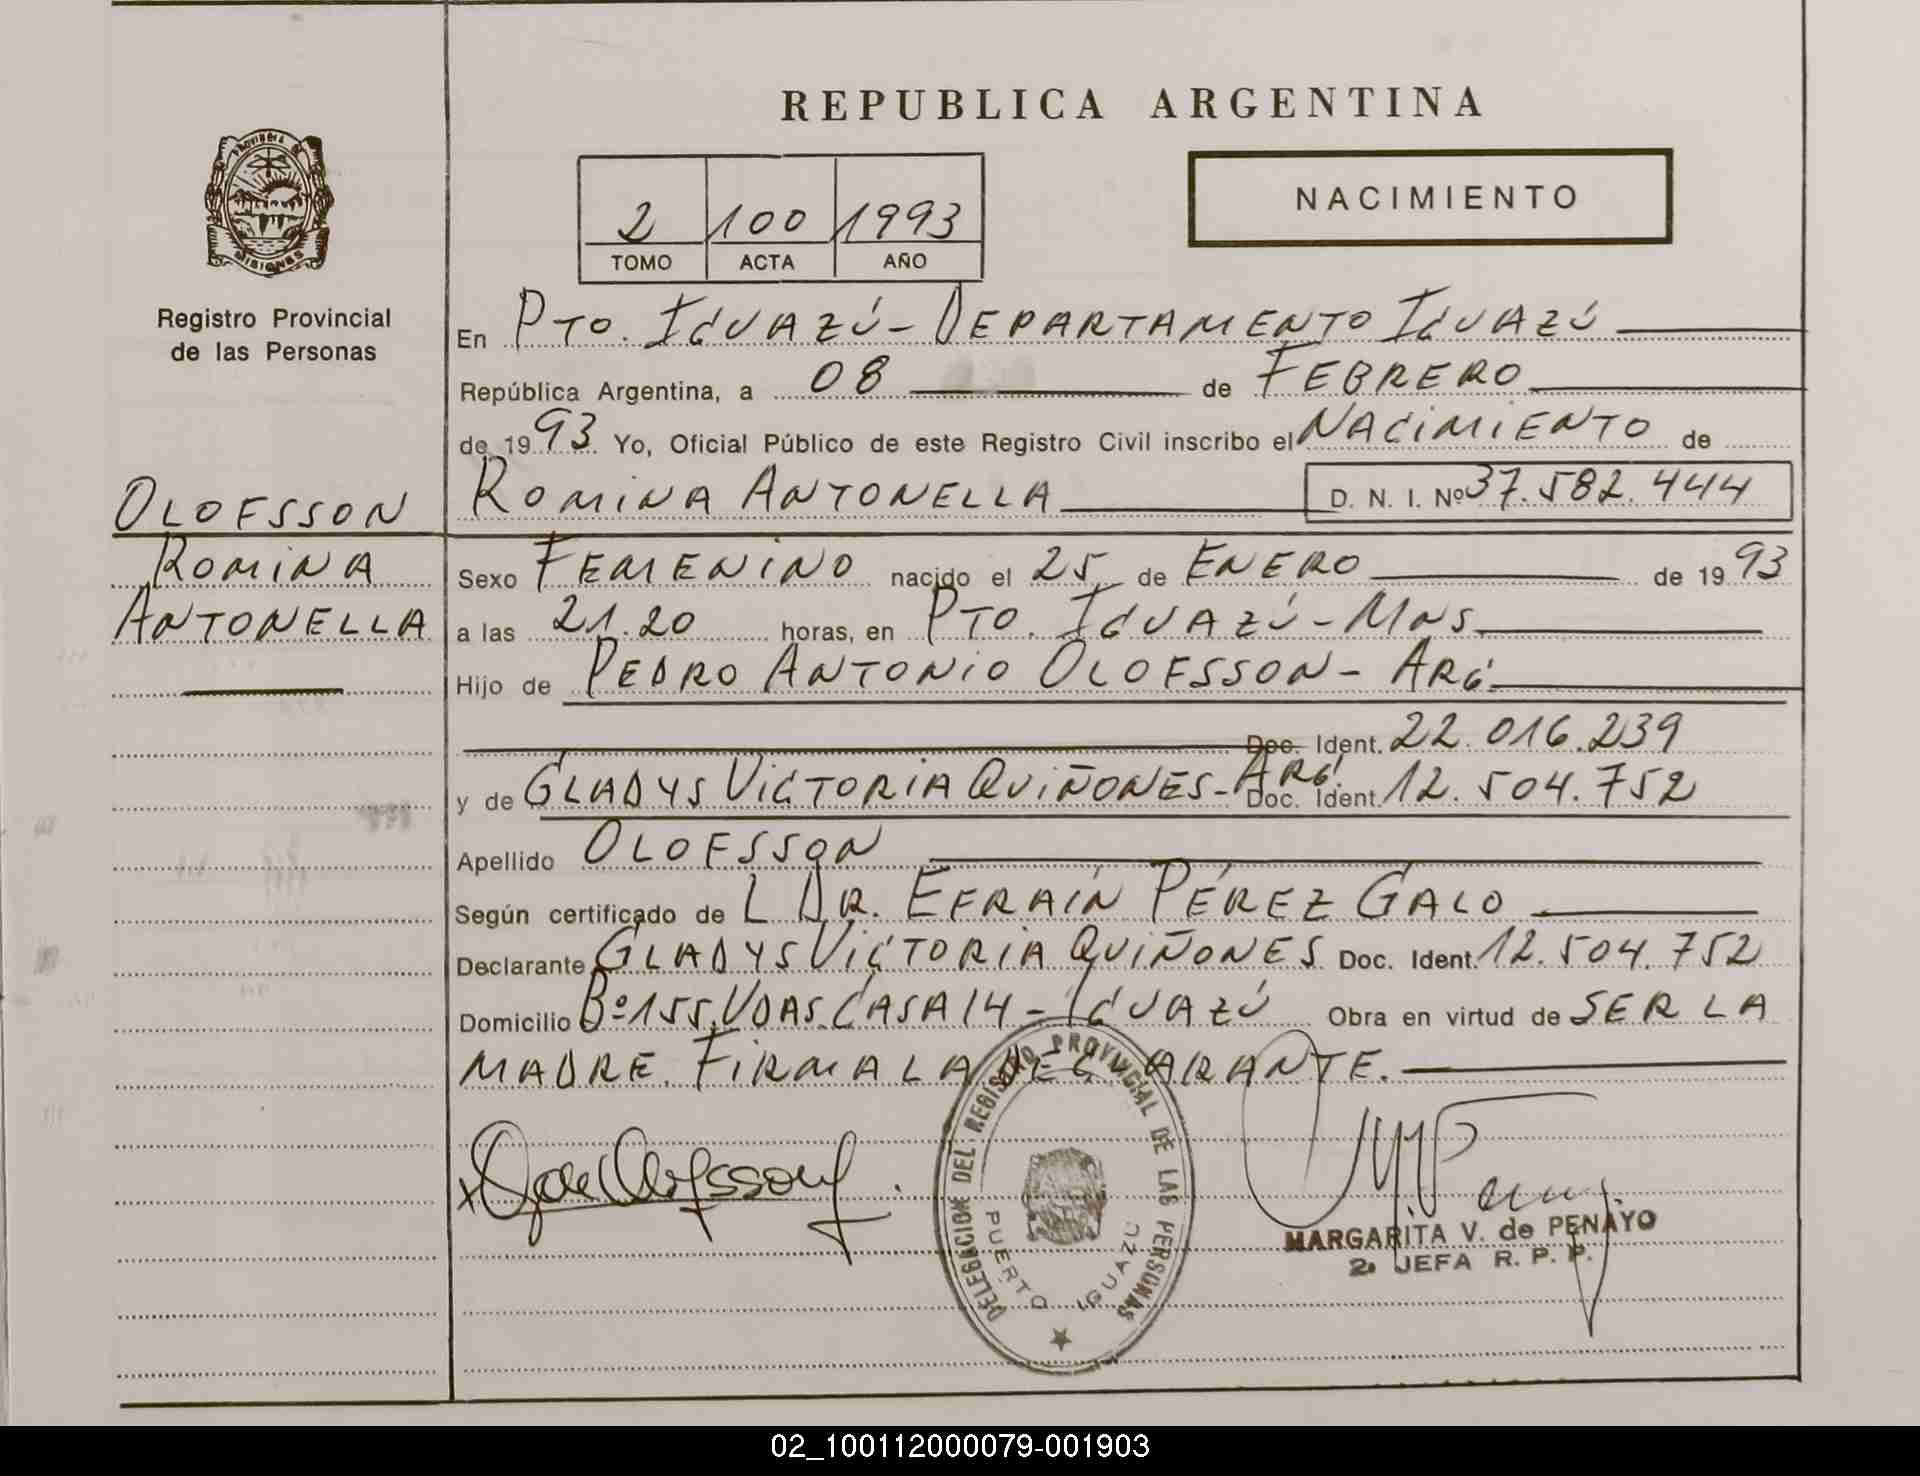 REPUBLICA ARGENTINA
PROVINCIA DE
MISIONES
Registro Provincial
de las Personas
2 100 1993
TOMO ACTA AÑO
NACIMIENTO
En PTO. IGUAZÚ - DEPARTAMENTO IGUAZÚ
República Argentina, a 08 de FEBRERO
de 1993 Yo, Oficial Público de este Registro Civil inscribo el NACIMIENTO de
ROMINA ANTONELLA D. N. I. Nº 37.582.444
OLOFSSON
ROMINA
ANTONELLA
Sexo FEMENINO nacido el 25 de ENERO de 1993
a las 21.20 horas, en PTO. IGUAZÚ - MNS
Hijo de PEDRO ANTONIO OLOFSSON - ARG.
Doc. Ident. 22.016.239
y de GLADYS VICTORIA QUIÑONES - ARG. Doc. Ident. 12.504.752
Apellido OLOFSSON
Según certificado de L DR. EFRAÍN PÉREZ GALO
Declarante GLADYS VICTORIA QUIÑONES Doc. Ident. 12.504.752
Domicilio Bº 155 VDAS. CASA 14 - IGUAZÚ Obra en virtud de SER LA
MADRE. FIRMA LA DECLARANTE.
DELEGACION DEL REGISTRO PROVINCIAL DE LAS PERSONAS
PUERTO IGUAZU
MARGARITA V. de PENAYO
2. JEFA R. P. P.
02_100112000079-001903